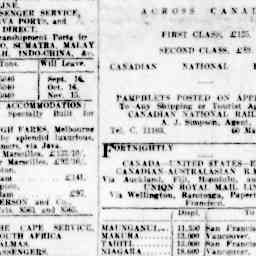 LINE.
PASSENGER SERVICE,
JAVA PORTS, and
DIRECT.
Transhipment Ports in
O, SUMATRA, MALAY
H. INDO-CHINA, &c.
Tons. Will Leave.
Sept. 16.
Oct. 14.
Nov. 15.
ACCOMMODATION
Specially Built for
GH FARES, Melbourne
by splendid luxurious,
mers, via Java.
Marseilles, £132/10/
r Marseilles, £92/10/.
£141.
£97.
ERSON and Co.,
THE CAPE SERVICE,
SOUTH AFRICA
PALMAS.
PASSENGERS.
ACROSS CANAD
FIRST CLASS, £125.
SECOND CLASS, £89
CANADIAN NATIONAL
PAMPHLETS POSTED ON APPL
To Any Shipping or Tourist Ag
CANADIAN NATIONAL RAIL
A. J. Simpson, Agent
Tel. C. 11103. 60 Ma
FORTNIGHTLY
CANADA—UNITED STATES—E
CANADIAN-AUSTRALASIAN R
Via Auckland, Fiji, Honolulu, and
UNION ROYAL MAIL LIN
Via Wellington, Raratonga, Papeet
Francisco.
Displ. To
MAUNGANUI 11,350 San Francisc
MAKURA 12,000 Vancouver.
TAHITI 12,000 San Francisc
NIAGARA 18,600 Vancouver.